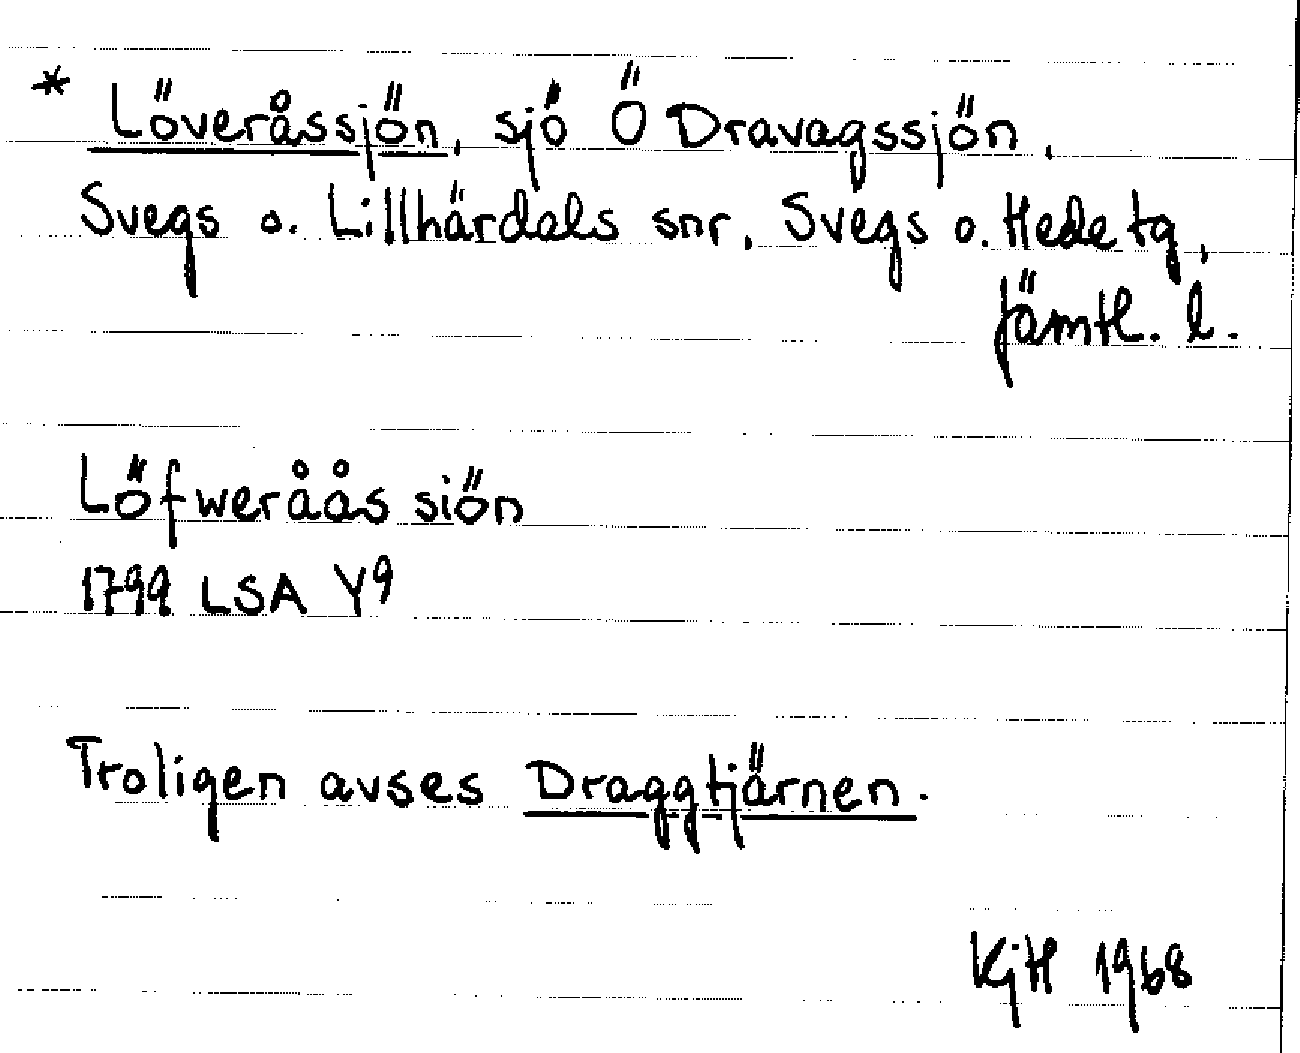 * Löveråssjön, sjö Ö Dravagssjön,
Svegs o. Lillhärdals snr, Svegs o. Hede tg,
Jämtl. l.
Löfweråås siön
1799 LSA Y9
Troligen avses Draggtjärnen.
KjH 1968